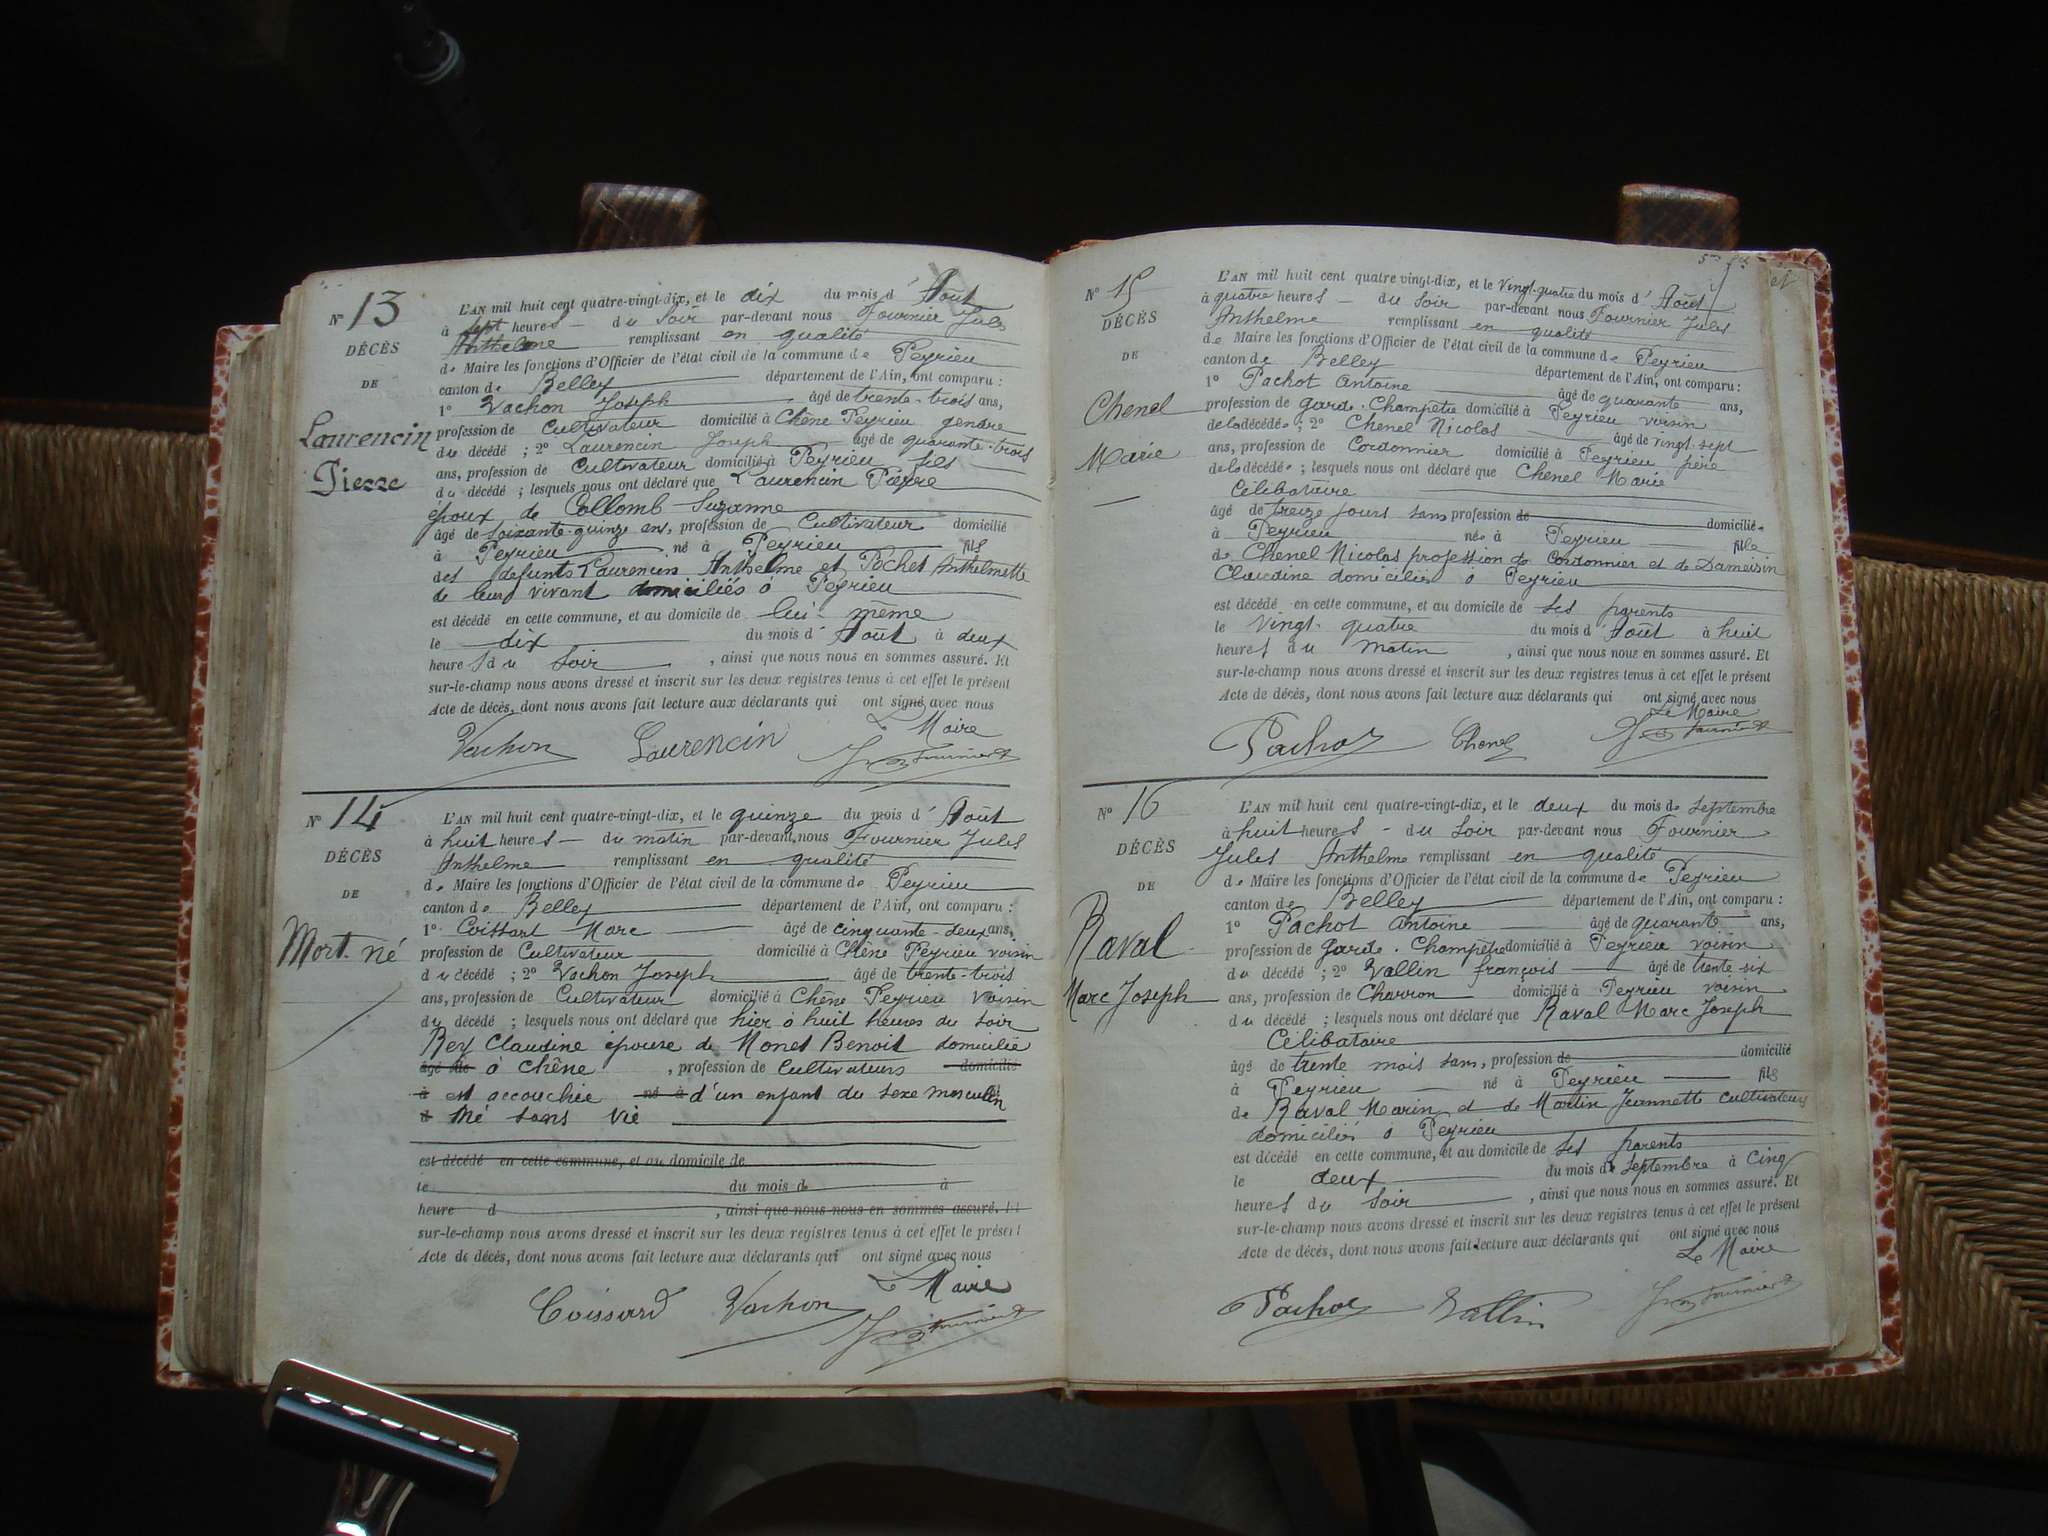 N° 13
DÉCÈS
DE
Laurencin
Pierre
L'AN mil huit cent quatre-vingt-dix, et le dix du mois d'Août
à sept heures du Soir par-devant nous Fournier Jules
Anthelme remplissant en qualité
de Maire les fonctions d'Officier de l'état civil de la commune de Peyrieu
canton de Belley département de l'Ain, ont comparu :
1° Vachon Joseph âgé de trente-trois ans,
profession de Cultivateur domicilié à Chêne Peyrieu gendre
du décédé ; 2° Laurencin Joseph âgé de quarante-trois
ans, profession de Cultivateur domicilié à Peyrieu fils
du décédé ; lesquels nous ont déclaré que Laurencin Pierre
époux de Collomb Suzanne
âgé de soixante-quinze ans, profession de Cultivateur domicilié
à Peyrieu né à Peyrieu fils
des défunts Laurencin Anthelme et Pochet Anthelmette
de leur vivant domiciliés à Peyrieu
est décédé en cette commune, et au domicile de lui-même
le dix du mois d'Août à deux
heures du Soir, ainsi que nous nous en sommes assuré. Et
sur-le-champ nous avons dressé et inscrit sur les deux registres tenus à cet effet le présent
Acte de décès, dont nous avons fait lecture aux déclarants qui ont signé avec nous
Le Maire
Vachon Laurencin J. Fournier
N° 14
DÉCÈS
DE
Mort-né
L'AN mil huit cent quatre-vingt-dix, et le quinze du mois d'Août
à huit heures du matin par-devant nous Fournier Jules
Anthelme remplissant en qualité
de Maire les fonctions d'Officier de l'état civil de la commune de Peyrieu
canton de Belley département de l'Ain, ont comparu :
1° Coissart Marc âgé de cinquante-deux ans,
profession de Cultivateur domicilié à Chêne Peyrieu voisin
du décédé ; 2° Vachon Joseph âgé de trente-trois
ans, profession de Cultivateur domicilié à Chêne Peyrieu voisin
du décédé ; lesquels nous ont déclaré que hier à huit heures du soir
Rey Claudine épouse de Monet Benoit domicilié
âgé de à Chêne, profession de Cultivateurs domicilié
à est accouchée né à d'un enfant du sexe masculin
d Né sans vie
est décédé en cette commune, et au domicile de
le du mois d à
heure d, ainsi que nous nous en sommes assuré. Et
sur-le-champ nous avons dressé et inscrit sur les deux registres tenus à cet effet le présent
Acte de décès, dont nous avons fait lecture aux déclarants qui ont signé avec nous
Le Maire
Coissard Vachon J. Fournier
N° 15
DÉCÈS
DE
Chenel
Marie
L'AN mil huit cent quatre vingt-dix, et le vingt-quatre du mois d'Août
à quatre heures du Soir par-devant nous Fournier Jules
Anthelme remplissant en qualité
de Maire les fonctions d'Officier de l'état civil de la commune de Peyrieu
canton de Belley département de l'Ain, ont comparu :
1° Pachot Antoine âgé de quarante ans,
profession de garde-Champêtre domicilié à Peyrieu voisin
de la décédée ; 2° Chenel Nicolas âgé de vingt-sept
ans, profession de Cordonnier domicilié à Peyrieu père
de la décédée ; lesquels nous ont déclaré que Chenel Marie
Célibataire
âgé de treize jours sans profession de domiciliée
à Peyrieu née à Peyrieu fille
de Chenel Nicolas profession de Cordonnier et de Dameisin
Claudine domiciliés à Peyrieu
est décédé en cette commune, et au domicile de ses parents
le vingt-quatre du mois d'Août à huit
heures du matin, ainsi que nous nous en sommes assuré. Et
sur-le-champ nous avons dressé et inscrit sur les deux registres tenus à cet effet le présent
Acte de décès, dont nous avons fait lecture aux déclarants qui ont signé avec nous
Le Maire
Pachot Chenel J. Fournier
N° 16
DÉCÈS
DE
Raval
Marc Joseph
L'AN mil huit cent quatre-vingt-dix, et le deux du mois de septembre
à huit heures du Soir par-devant nous Fournier
Jules Anthelme remplissant en qualité
de Maire les fonctions d'Officier de l'état civil de la commune de Peyrieu
canton de Belley département de l'Ain, ont comparu :
1° Pachot Antoine âgé de quarante ans,
profession de garde-Champêtre domicilié à Peyrieu voisin
du décédé ; 2° Vallin françois âgé de trente-six
ans, profession de Charron domicilié à Peyrieu voisin
du décédé ; lesquels nous ont déclaré que Raval Marc Joseph
Célibataire
âgé de trente mois sans, profession de domicilié
à Peyrieu né à Peyrieu fils
de Raval Marin et de Martin Jeannette cultivateurs
domiciliés à Peyrieu
est décédé en cette commune, et au domicile de ses parents
le deux du mois de septembre à cinq
heures du Soir, ainsi que nous nous en sommes assuré. Et
sur-le-champ nous avons dressé et inscrit sur les deux registres tenus à cet effet le présent
Acte de décès, dont nous avons fait lecture aux déclarants qui ont signé avec nous
Le Maire
Pachot Vallin J. Fournier